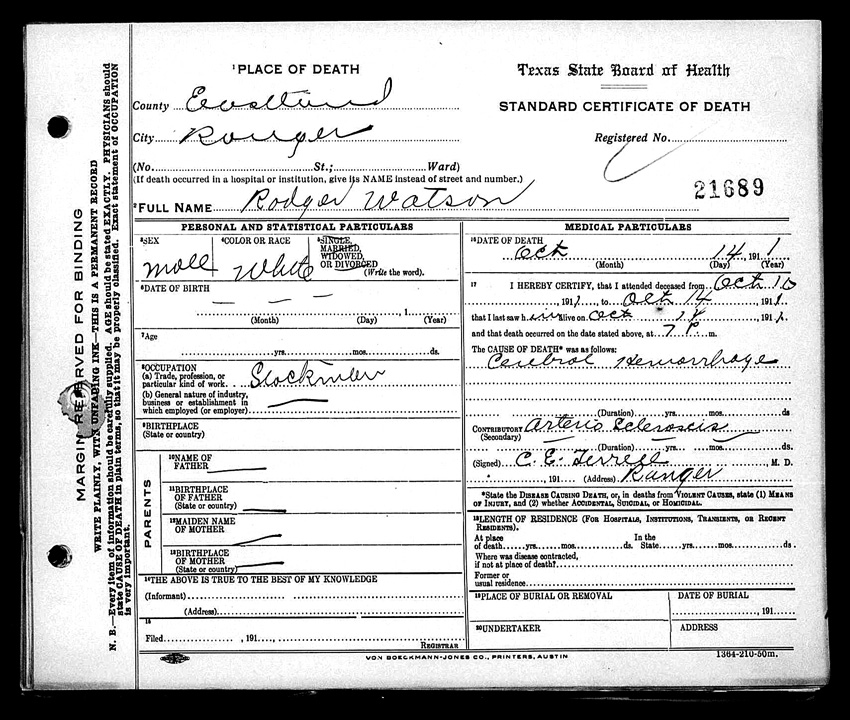 ¹PLACE OF DEATH
County Eastland
City Ranger
(No. St.; Ward)
(If death occurred in a hospital or institution, give its NAME instead of street and number.)
²FULL NAME Rodger Watson
Texas State Board of Health
STANDARD CERTIFICATE OF DEATH
Registered No.
21689
PERSONAL AND STATISTICAL PARTICULARS
³SEX
Male
⁴COLOR OR RACE
White
⁵SINGLE,
MARRIED,
WIDOWED,
OR DIVORCED
(Write the word).
⁶DATE OF BIRTH
— — — 1
(Month) (Day) (Year)
⁷Age
yrs. mos. ds.
⁸OCCUPATION
(a) Trade, profession, or
particular kind of work Stockman
(b) General nature of industry,
business or establishment in
which employed (or employer)
⁹BIRTHPLACE
(State or country)
PARENTS
¹⁰NAME OF
FATHER
¹¹BIRTHPLACE
OF FATHER
(State or country)
¹²MAIDEN NAME
OF MOTHER
¹³BIRTHPLACE
OF MOTHER
(State or country)
¹⁴THE ABOVE IS TRUE TO THE BEST OF MY KNOWLEDGE
(Informant)
(Address)
¹⁵
Filed , 191
REGISTRAR
MEDICAL PARTICULARS
¹⁶DATE OF DEATH
Oct 14, 1911
(Month) (Day) (Year)
¹⁷ I HEREBY CERTIFY, that I attended deceased from Oct 10
, 191 , to Oct 14 191
that I last saw him alive on Oct 191
and that death occurred on the date stated above, at 7 P. m.
The CAUSE OF DEATH* was as follows:
Cerebral Hemorrhage
(Duration) yrs. mos. ds
CONTRIBUTORY Arterio Sclerosis
(Secondary)
(Duration) yrs. mos. ds.
(Signed) C. E. Terrell, M. D.
, 191 (Address) Ranger
*State the DISEASE CAUSING DEATH, or, in deaths from VIOLENT CAUSES, state (1) MEANS
OF INJURY, and (2) whether ACCIDENTAL, SUICIDAL, OR HOMICIDAL.
¹⁸LENGTH OF RESIDENCE (FOR HOSPITALS, INSTITUTIONS, TRANSIENTS, OR RECENT
RESIDENTS).
At place In the
of death yrs. mos. ds. State yrs. mos. ds.
Where was disease contracted,
if not at place of death?
Former or
usual residence
¹⁹PLACE OF BURIAL OR REMOVAL
DATE OF BURIAL
, 191
²⁰UNDERTAKER
ADDRESS
VON BOECKMANN-JONES CO., PRINTERS, AUSTIN
1364-210-50m.
MARGIN RESERVED FOR BINDING
WRITE PLAINLY, WITH UNFADING INK—THIS IS A PERMANENT RECORD
N. B.—Every item of information should be carefully supplied. AGE should be stated EXACTLY. PHYSICIANS should
state CAUSE OF DEATH in plain terms, so that it may be properly classified. Exact statement of OCCUPATION
is very important.